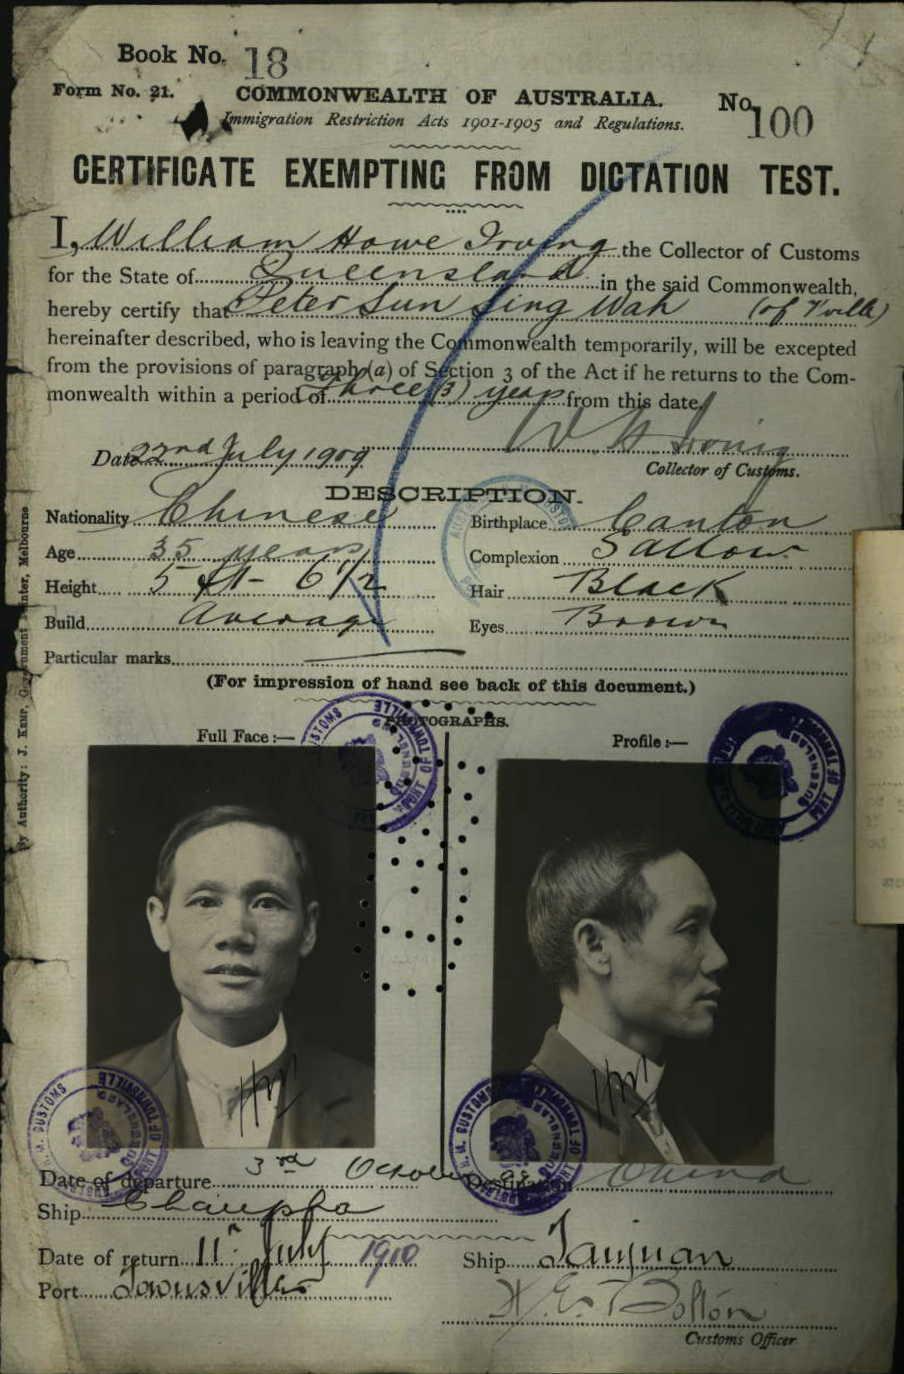 Book No. 18
Form No. 21.
COMMONWEALTH OF AUSTRALIA.
No. 100
Immigration Restriction Acts 1901-1905 and Regulations.
CERTIFICATE EXEMPTING FROM DICTATION TEST.
I, William Howe Irving the Collector of Customs
for the State of Queensland in the said Commonwealth,
hereby certify that Peter Sun Sing Wah (of T'ville)
hereinafter described, who is leaving the Commonwealth temporarily, will be excepted
from the provisions of paragraph (a) of Section 3 of the Act if he returns to the Com-
monwealth within a period of three (3) years from this date.
W. H. Irving
Date 22nd July 1909
Collector of Customs.
DESCRIPTION.
Nationality Chinese Birthplace Canton
Age 35 years Complexion Sallow
Height 5 ft - 6 1/2 Hair Black
Build average Eyes Brown
Particular marks
(For impression of hand see back of this document.)
PHOTOGRAPHS.
Full Face :— Profile :—
H.M. CUSTOMS PORT OF TOWNSVILLE QUEENSLAND
H.M. CUSTOMS PORT OF TOWNSVILLE QUEENSLAND
H.M. CUSTOMS PORT OF TOWNSVILLE QUEENSLAND
H.M. CUSTOMS PORT OF TOWNSVILLE QUEENSLAND
Date of departure 3rd October Destination China
Ship
Date of return 11th July 1910 Ship Taiyuan
Port Townsville
H. E. Bolton
Customs Officer
By Authority: J. KEMP, Government Printer, Melbourne